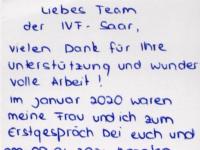 Liebes Team
der IVF-Saar,
vielen Dank für Ihre
unterstützung und wunder
volle Arbeit!
Im Januar 2020 waren
meine Frau und ich zum
Erstgespräch bei euch und
am